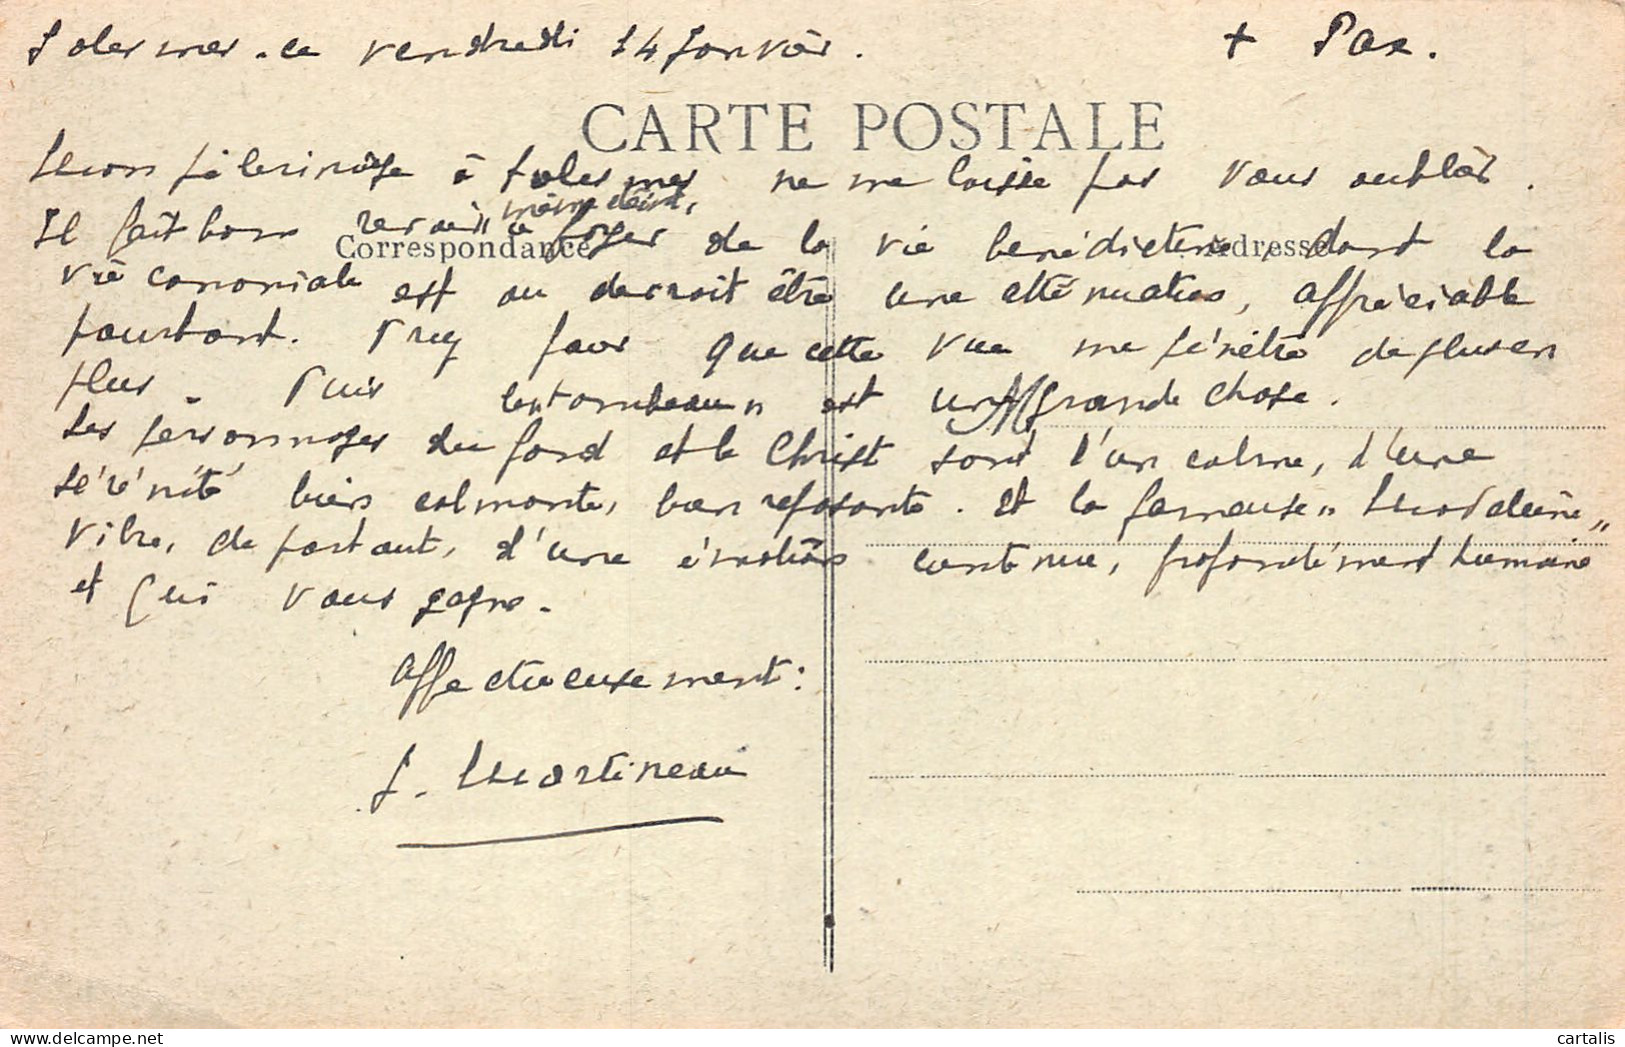 Solesmes. ce vendredi 14 Janvier.
+ Pax.
CARTE POSTALE
Mon pèlerinage à Solesmes ne me laisse pas vous oublier.
même éteint,
Il fait bon revoir, ce foyer de la vie bénédictine, dont la
Correspondance
Adresse
vie canoniale est ou devrait être une atténuation, appréciable
pourtant. Priez pour que cette vue me pénètre de plus en
plus. Puis le "tombeau" est une grande chose.
Les personnages du fond et le Christ sont d'un calme, d'une
sérénité bien calmante, bien reposante. Et la fameuse "Madeleine"
vibre, de partout, d'une émotion contenue, profondément humaine
et qui vous gagne.
Affectueusement:
J. Martineau
cartalis